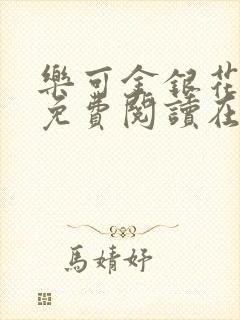 樂可金銀花
免費閱讀在
馬婧妤